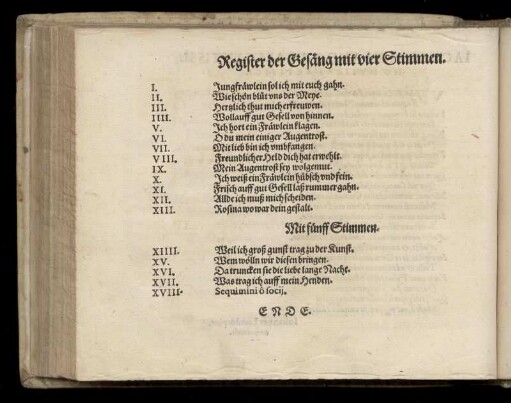 Register der Gesäng mit vier Stimmen.
I. Jungfräwlein sol ich mit euch gahn.
II. Wie schön blüt vns der Meye.
III. Hertzlich thut mich erfreuwen.
IIII. Wollauff gut Gesell von hinnen.
V. Ich hort ein Fräwlein klagen.
VI. O du mein einiger Augentrost.
VII. Mit lieb bin ich vmbfangen.
VIII. Freundlicher Held dich hat erwehlt.
IX. Mein Augentrost sey wolgemut.
X. Ich weiß ein Fräwlein hübsch vnd fein.
XI. Frisch auff gut Gesell laß rummer gahn.
XII. Allde ich muß mich scheiden.
XIII. Rosina wo war dein gestalt.
Mit fünff Stimmen.
XIIII. Weil ich groß gunst trag zu der Kunst.
XV. Wem wölln wir diesen bringen.
XVI. Da truncken sie die liebe lange Nacht.
XVII. Was trag ich auff mein Henden.
XVIII. Sequimini ô socij.
E N D E.